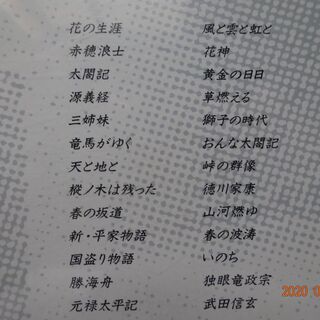 花の生涯
赤穂浪士
太閤記
源義経
三姉妹
竜馬がゆく
天と地と
樅ノ木は残った
春の坂道
新・平家物語
国盗り物語
勝海舟
元禄太平記
風と雲と虹と
花神
黄金の日日
草燃える
獅子の時代
おんな太閤記
峠の群像
徳川家康
山河燃ゆ
春の波涛
いのち
独眼竜政宗
武田信玄
2020 0